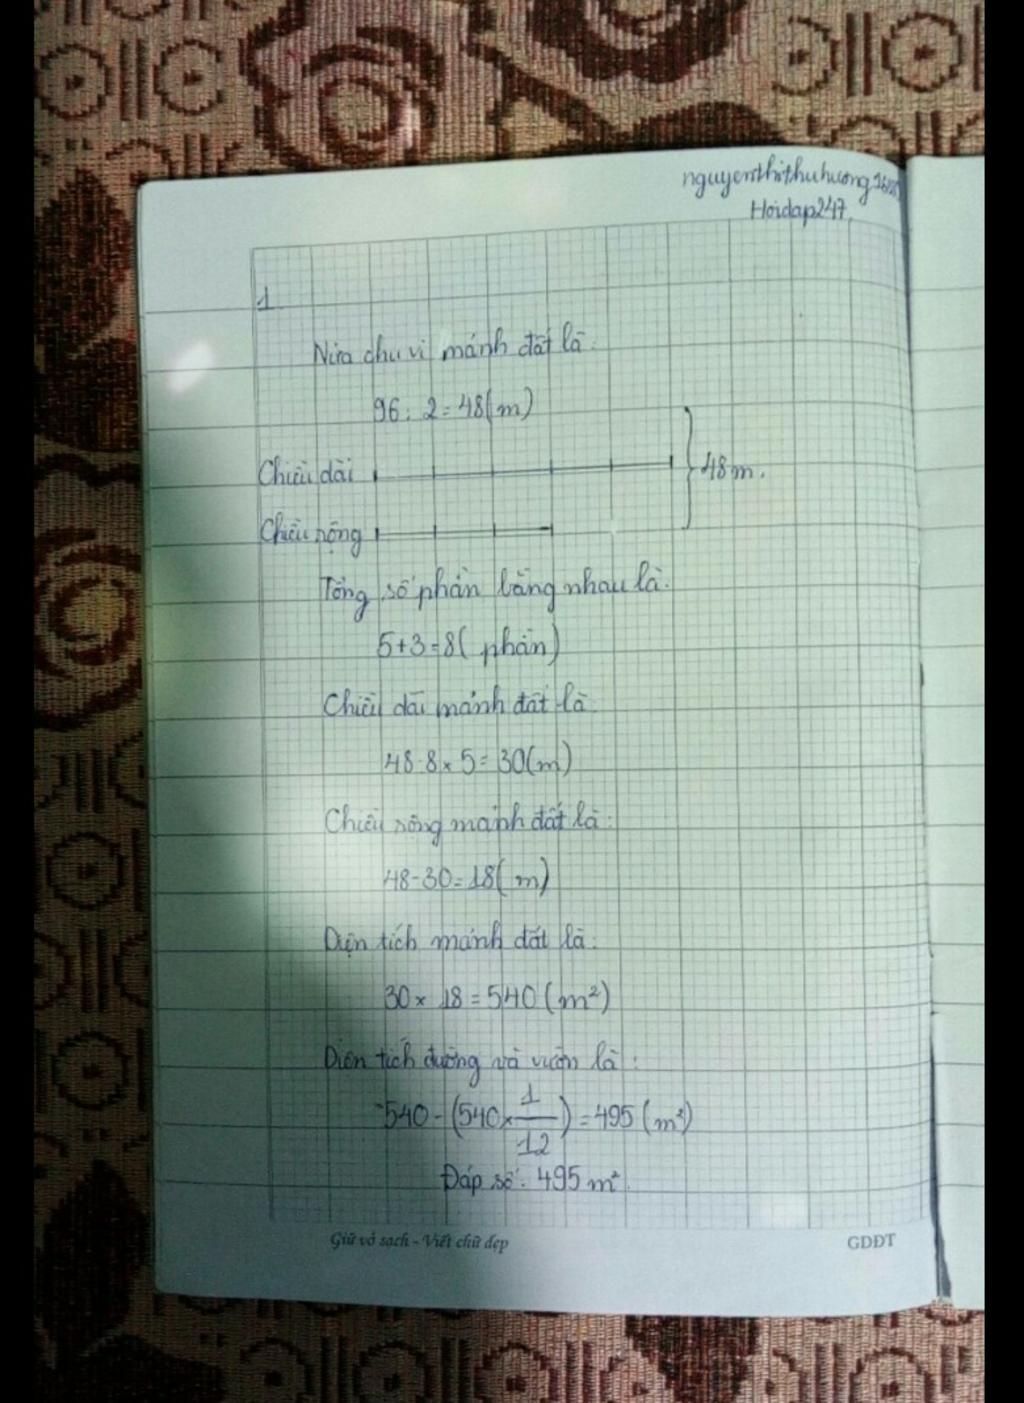 nguyenthithuhuong
Hoidap247.
1
Nửa chu vi mảnh đất là:
96 : 2 = 48 (m)
Chiều dài
48 m.
Chiều rộng
Tổng số phần bằng nhau là:
5+3=8( phần)
Chiều dài mảnh đất là:
48:8×5=30(m)
Chiều rộng mảnh đất là:
48-30=18( m)
Diện tích mảnh đất là:
30×18=540(m²)
Diện tích đường và vườn là:
540-(540×1/12)=495(m²)
Đáp số: 495 m².
Giữ vở sạch - Viết chữ đẹp
GDĐT